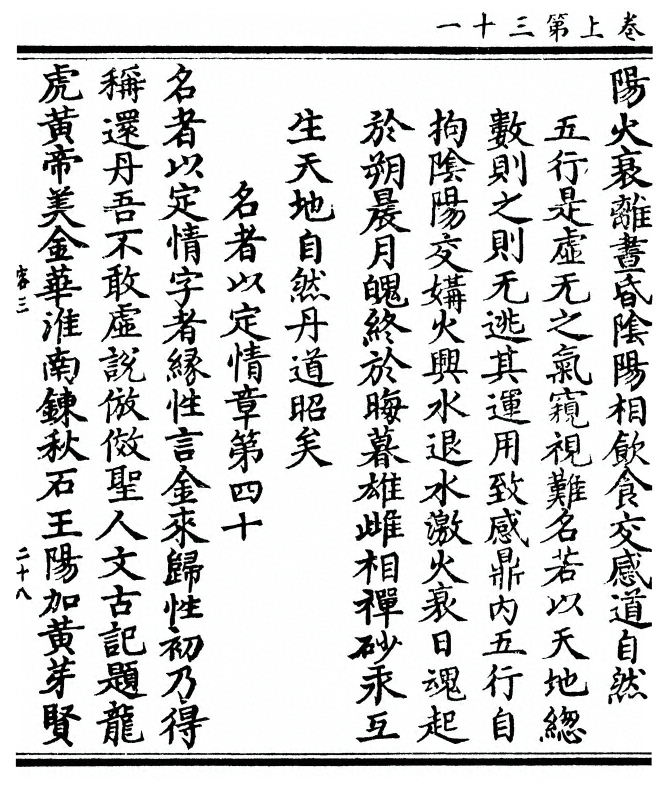 卷上第三十一
陽火衰離晝昏陰陽相飲食交感道自然
五行是虛无之氣窺視難名若以天地緫
數則之則无逃其運用致感鼎內五行自
拘陰陽交媾火興水退水激火衰日魂起
於朔晨月魄終於晦暮雄雌相禪砂汞互
生天地自然丹道昭矣
名者以定情章第四十
名者以定情字者緣性言金來歸性初乃得
稱還丹吾不敢虛說倣傚聖人文古記題龍
虎黃帝美金華淮南鍊秋石王陽加黃芽賢
容三
二十八